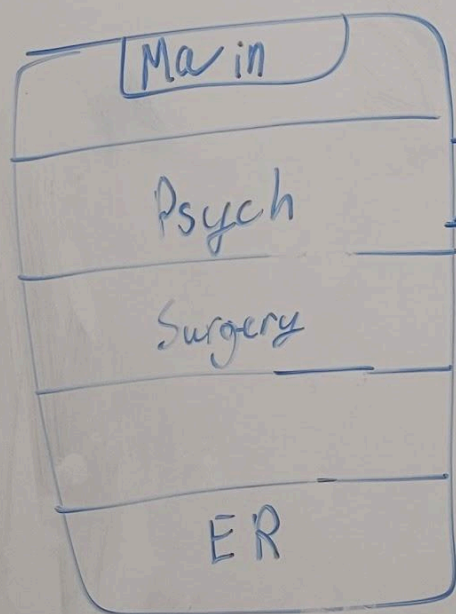 Main
Psych
Surgery
ER